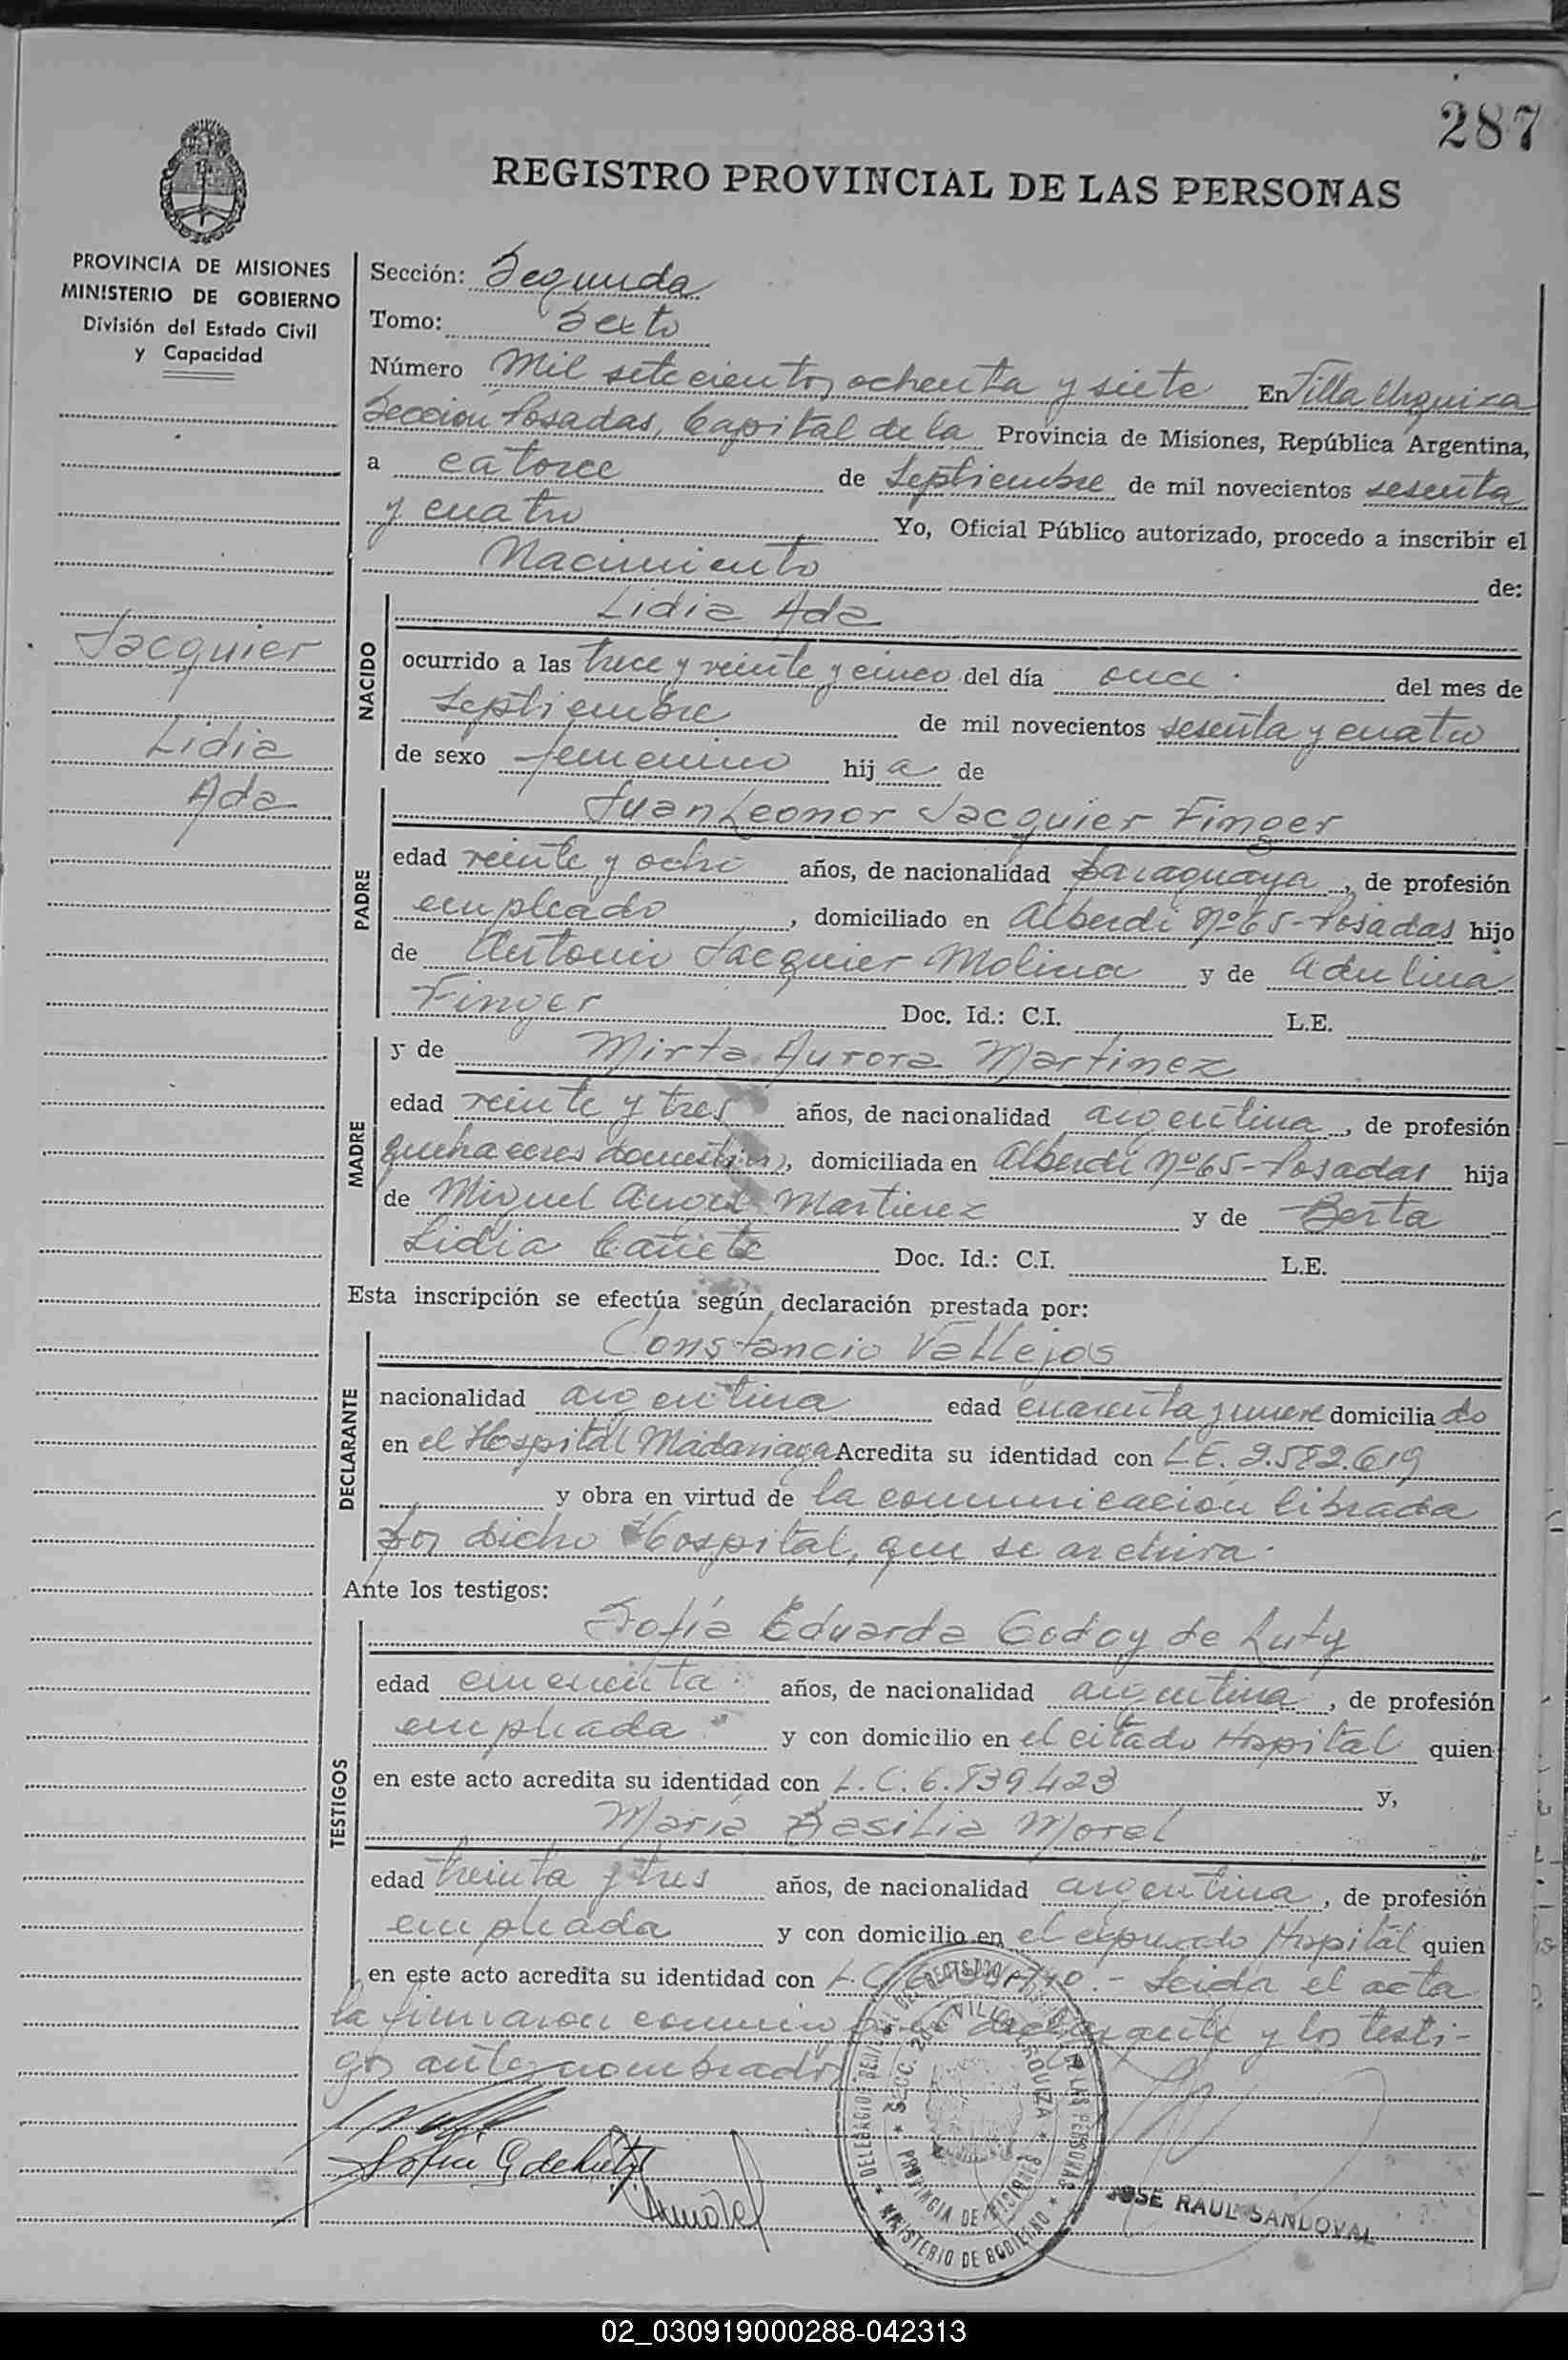 287
REGISTRO PROVINCIAL DE LAS PERSONAS
PROVINCIA DE MISIONES
MINISTERIO DE GOBIERNO
División del Estado Civil
y Capacidad
Jacquier
Lidia
Ada
Sección: Segunda
Tomo: Sexto
Número Mil setecientos ochenta y siete En Villa Urquiza
Sección Posadas, Capital de la Provincia de Misiones, República Argentina,
a catorce de Septiembre de mil novecientos sesenta
y cuatro Yo, Oficial Público autorizado, procedo a inscribir el
Nacimiento de:
NACIDO
Lidia Ada
ocurrido a las trece y veinte y cinco del día once del mes de
Septiembre de mil novecientos sesenta y cuatro
de sexo femenino hija de
PADRE
Juan Leonor Jacquier Finger
edad veinte y ocho años, de nacionalidad paraguaya, de profesión
empleado, domiciliado en Alberdi Nº 65-Posadas hijo
de Antonio Jacquier Molina y de Adulina
Finger Doc. Id.: C.I. L.E.
MADRE
y de Mirta Aurora Martinez
edad veinte y tres años, de nacionalidad argentina, de profesión
quehaceres domesticos, domiciliada en Alberdi Nº 65-Posadas hija
de Miguel Angel Martinez y de Berta
Lidia Cañete Doc. Id.: C.I. L.E.
Esta inscripción se efectúa según declaración prestada por:
DECLARANTE
Constancio Vallejos
nacionalidad argentina edad cuarenta y nueve domiciliado
en el Hospital Madariaga Acredita su identidad con L.E. 2.582.619
y obra en virtud de la comunicación librada
por dicho Hospital, que se archiva.
Ante los testigos:
TESTIGOS
Sofía Eduarda Godoy de Luty
edad cincuenta años, de nacionalidad argentina, de profesión
empleada y con domicilio en el citado Hospital quien
en este acto acredita su identidad con L.C. 6.839.423 y,
María Basilia Morel
edad treinta y tres años, de nacionalidad argentina, de profesión
empleada y con domicilio en el expresado Hospital quien
en este acto acredita su identidad con L.C. - Leida el acta
la firmaron conmigo el declarante y los testi-
gos antes nombrados
Sofia G de Luty
AMorel
SECC. 2da. VILLA URQUIZA
PROVINCIA DE MISIONES
MINISTERIO DE GOBIERNO
JOSE RAUL SANDOVAL
02_030919000288-042313